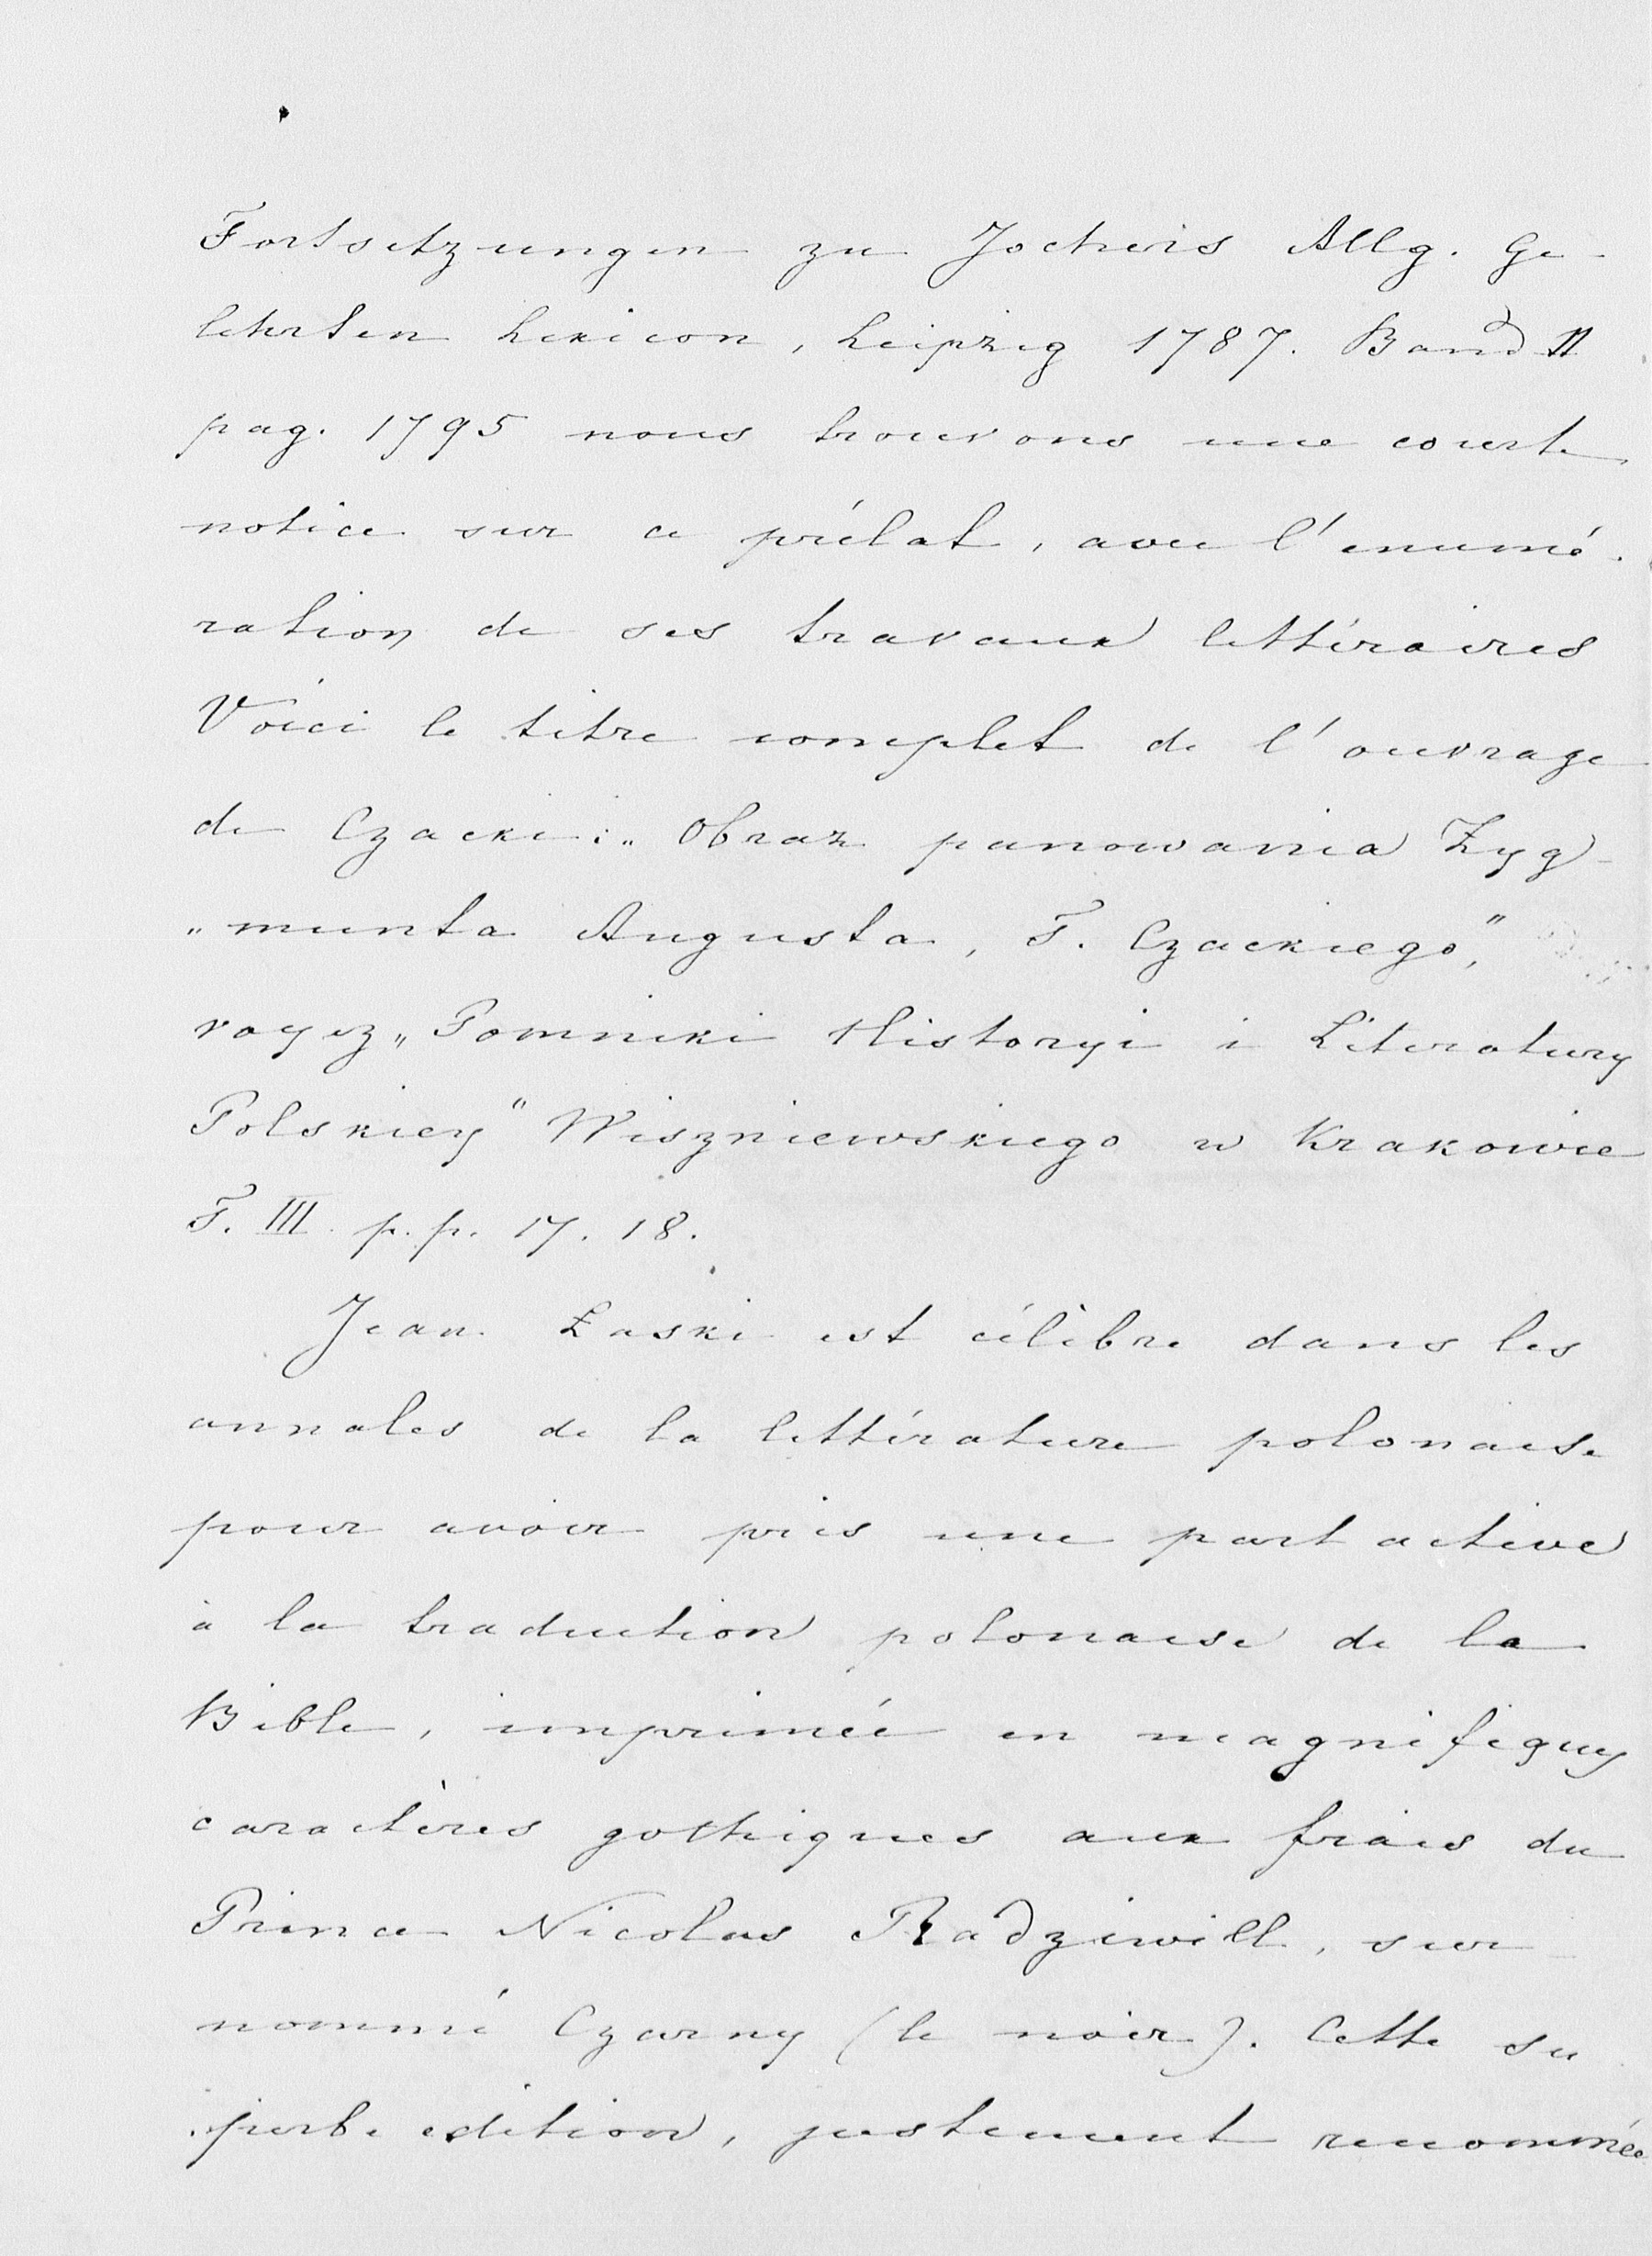 Fortsetzungen zu Jochers Allg. Ge-
lehrten Lexicon, Leipzig 1787. Band II
pag. 1795 nous trouvons une courte
notice sur ce prélat, avec l'enumé-
ration de ses travaux littéraires
Voici le titre complet de l'ouvrage
de Czacki: „Obraz panowania Zyg-
„munta Augusta, T. Czackiego,"
voyez „Pomniki Historyi i Literatury
Polskiey" Wiszniewskiego w Krakowie
T. III. p.p. 17. 18.
Jean Łaski est célèbre dans les
annales de la littérature polonaise
pour avoir pris une part active
à la traduction polonaise de la
Bible, imprimée en magnifiques
caractères gothiques aux frais du
Prince Nicolas Radziwill, sur
nommé Czarny (le noir). Cette su
perbe edition, justement renommée